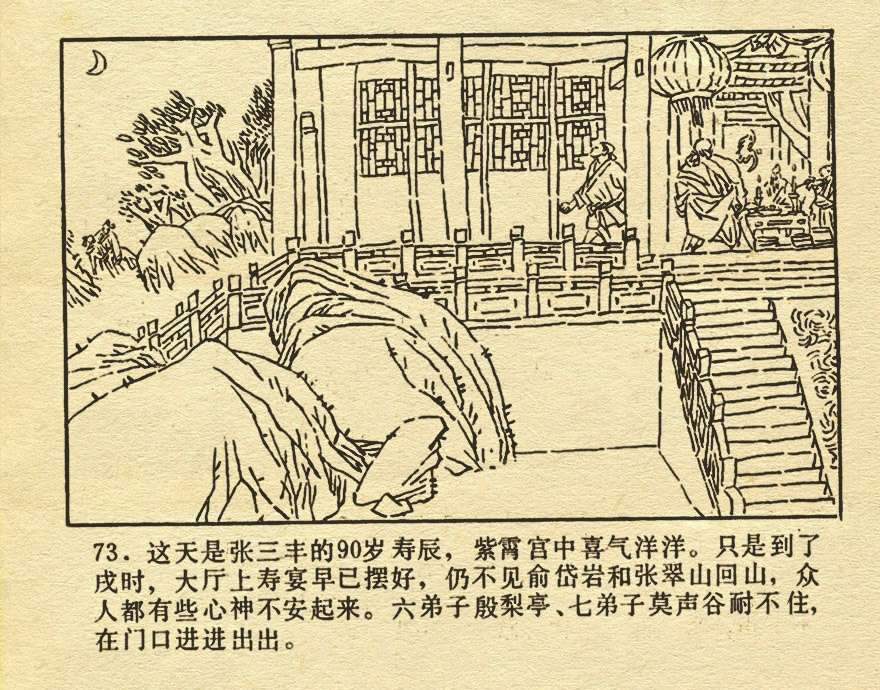 73．这天是张三丰的90岁寿辰，紫霄宫中喜气洋洋。只是到了
戌时，大厅上寿宴早已摆好，仍不见俞岱岩和张翠山回山，众
人都有些心神不安起来。六弟子殷梨亭、七弟子莫声谷耐不住，
在门口进进出出。